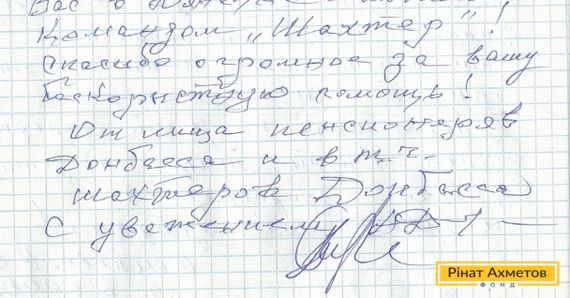 Вас с
Командой „Шахтер"!
Спасибо огромное за вашу
бескорыстную помощь!
От лица пенсионеров
Донбасса и в т.ч.
шахтеров Донбасса
С уважением
Рінат Ахметов
ФОНД